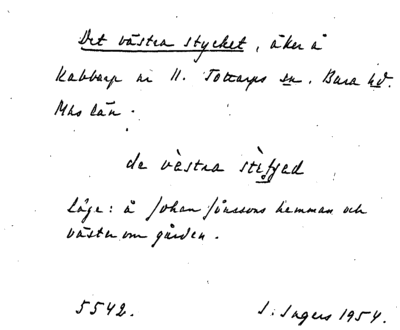 Det västra stycket, åker å
Kabbarp nr 11. Tottarps sn. Bara hd.
Mhs län.
de västra
Läge: å Johan Jönssons hemman och
väster om gården.
5542. I. Ingers 1954.